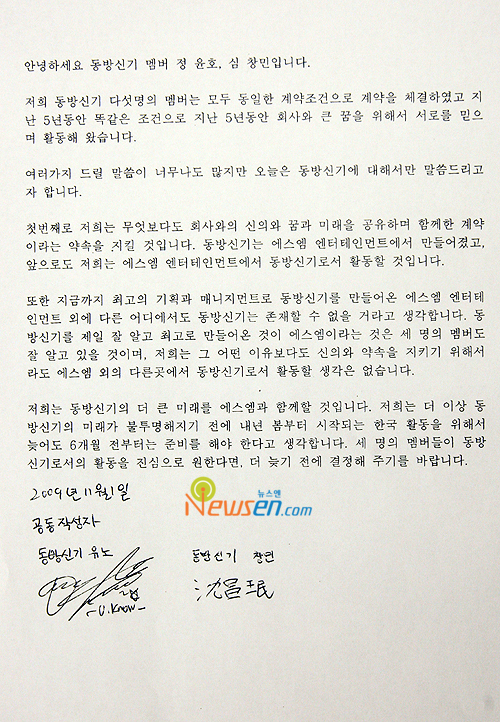 안녕하세요 동방신기 멤버 정 윤호, 심 창민입니다.
저희 동방신기 다섯명의 멤버는 모두 동일한 계약조건으로 계약을 체결하였고 지
난 5년동안 똑같은 조건으로 지난 5년동안 회사와 큰 꿈을 위해서 서로를 믿으
며 활동해 왔습니다.
여러가지 드릴 말씀이 너무나도 많지만 오늘은 동방신기에 대해서만 말씀드리고
자 합니다.
첫번째로 저희는 무엇보다도 회사와의 신의와 꿈과 미래를 공유하며 함께한 계약
이라는 약속을 지킬 것입니다. 동방신기는 에스엠 엔터테인먼트에서 만들어졌고,
앞으로도 저희는 에스엠 엔터테인먼트에서 동방신기로서 활동할 것입니다.
또한 지금까지 최고의 기획과 매니지먼트로 동방신기를 만들어온 에스엠 엔터테
인먼트 외에 다른 어디에서도 동방신기는 존재할 수 없을 거라고 생각합니다. 동
방신기를 제일 잘 알고 최고로 만들어온 것이 에스엠이라는 것은 세 명의 멤버도
잘 알고 있을 것이며, 저희는 그 어떤 이유보다도 신의와 약속을 지키기 위해서
라도 에스엠 외의 다른곳에서 동방신기로서 활동할 생각은 없습니다.
저희는 동방신기의 더 큰 미래를 에스엠과 함께할 것입니다. 저희는 더 이상 동
방신기의 미래가 불투명해지기 전에 내년 봄부터 시작되는 한국 활동을 위해서
늦어도 6개월 전부터는 준비를 해야 한다고 생각합니다. 세 명의 멤버들이 동방
신기로서의 활동을 진심으로 원한다면, 더 늦기 전에 결정해 주기를 바랍니다.
2009년 11월 1일
뉴스엔
Newsen.com
공동작성자
동방신기 유노 동방신기 창민
-U.Know-
沈昌珉